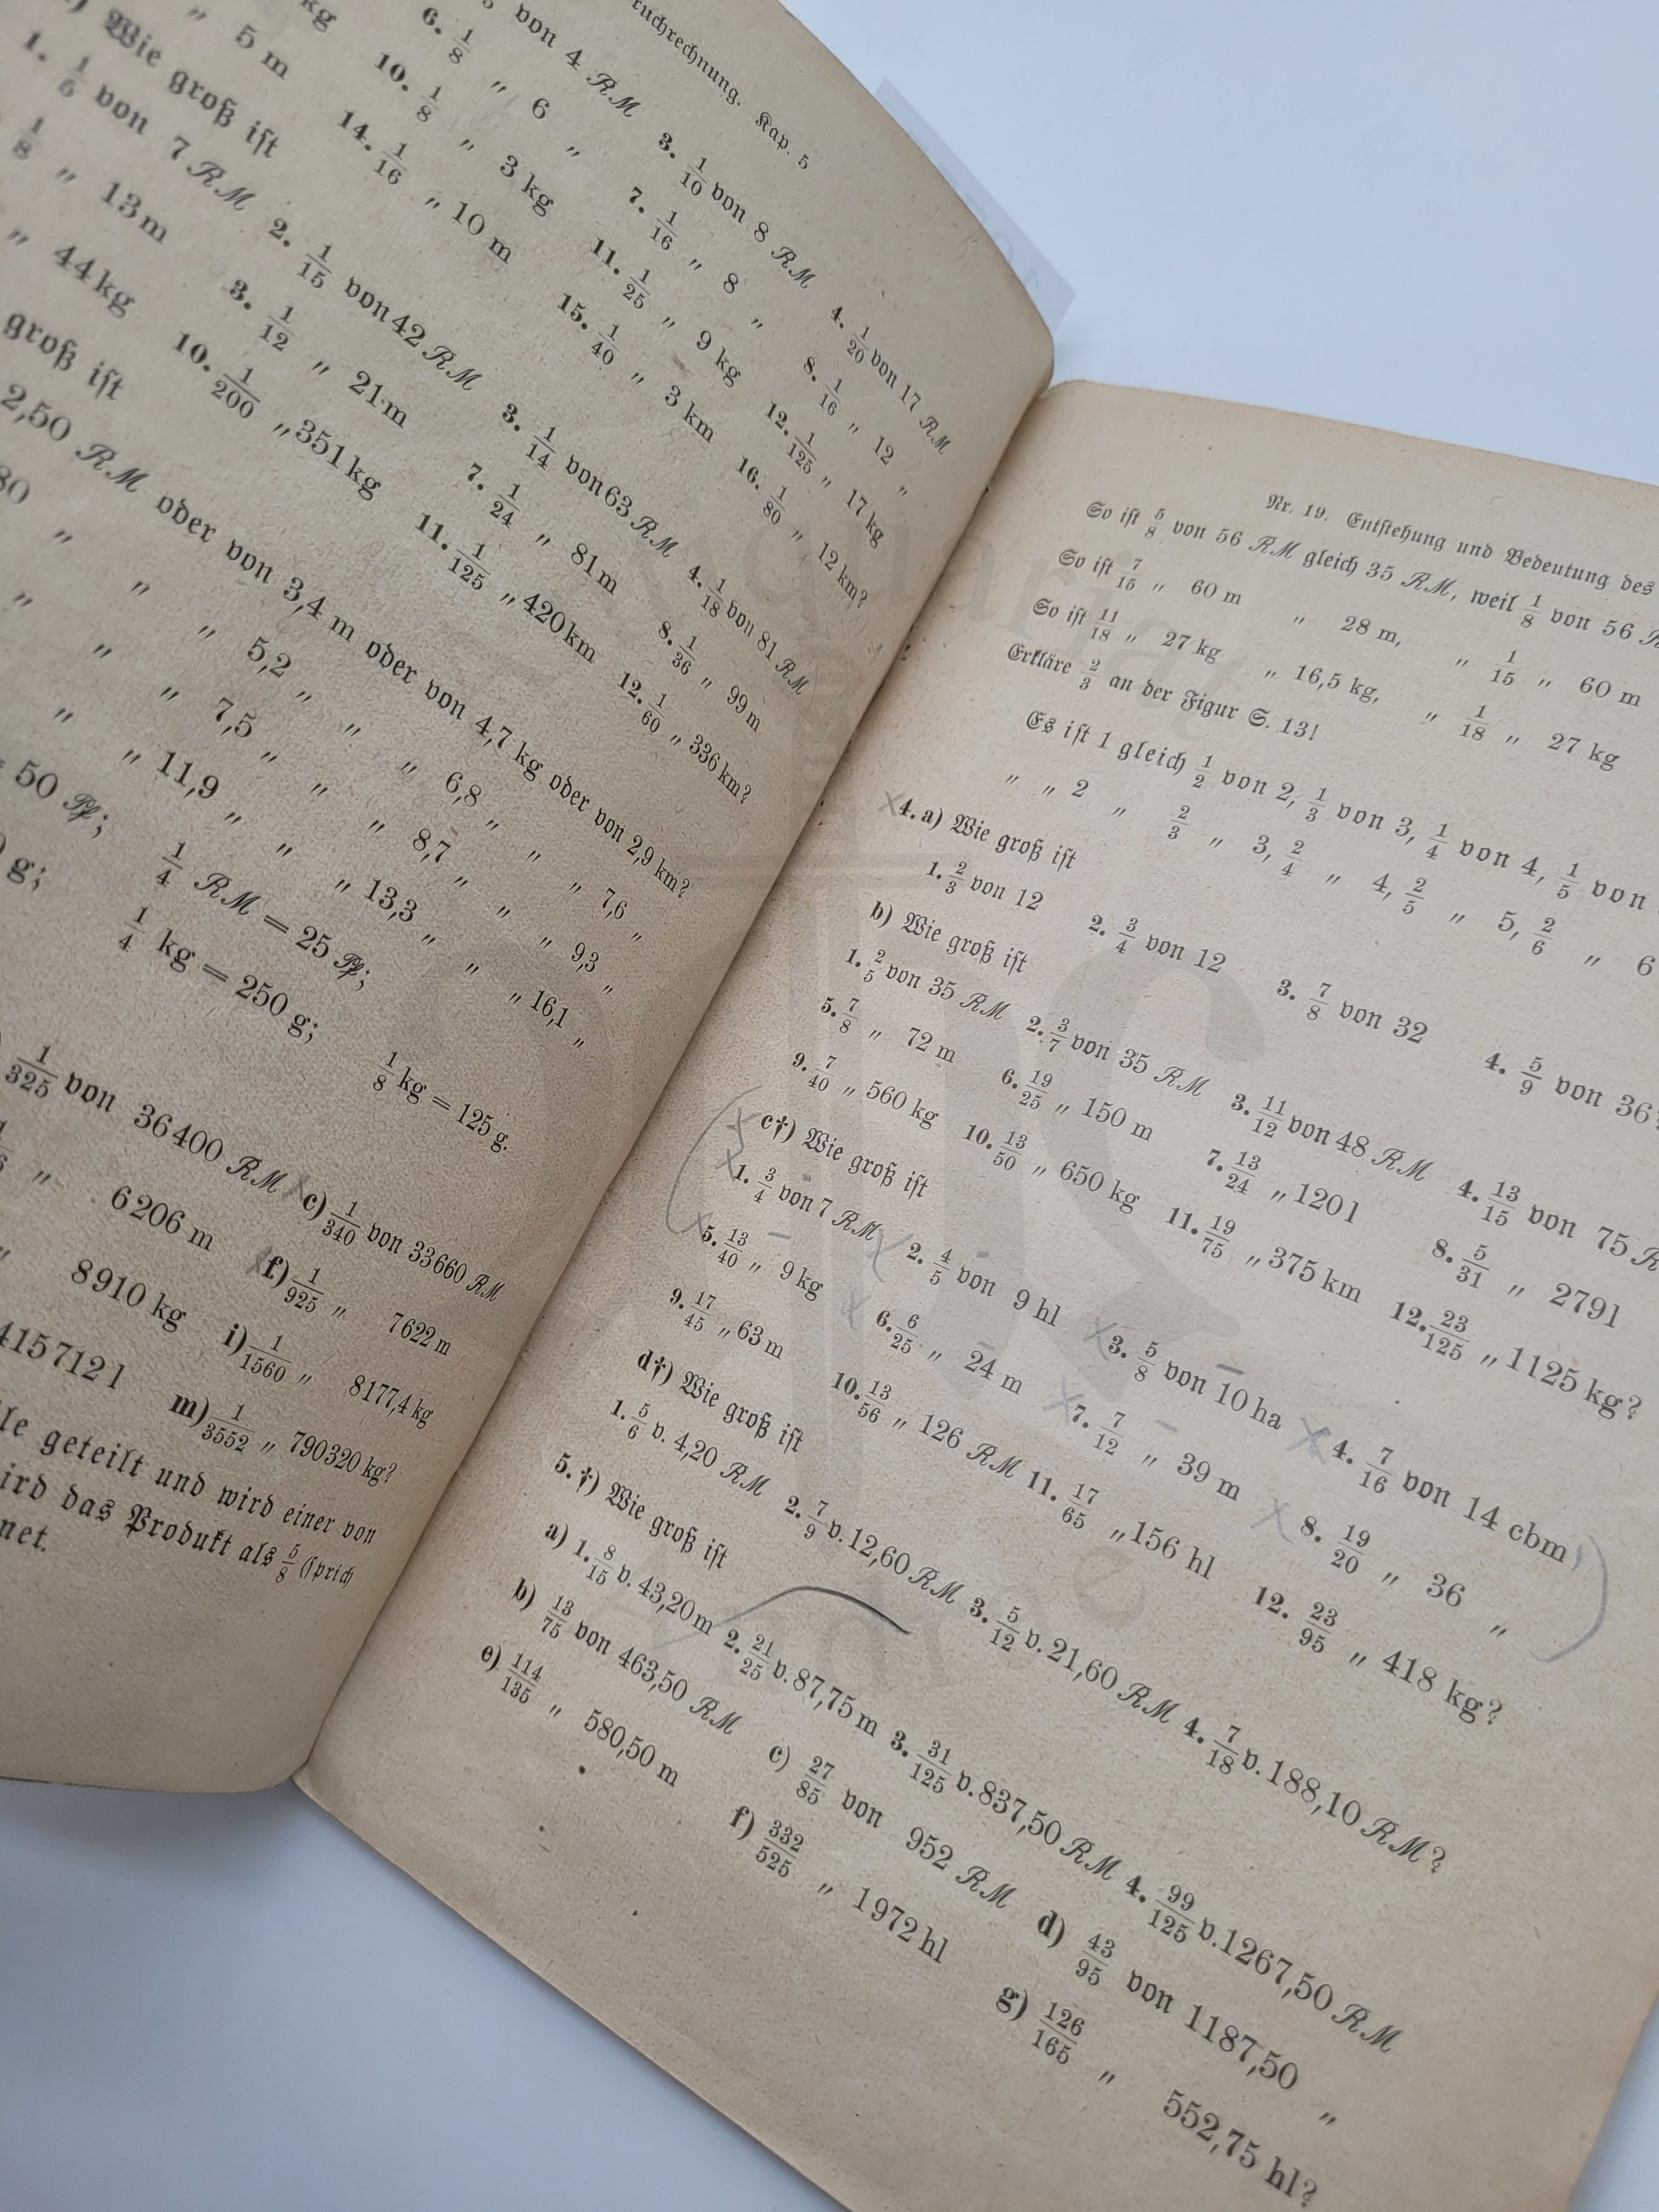 ruchrechnung. Kap. 5
von 4 RM 3. 1/10 von 8 RM 4. 1/20 von 17 RM
6. 1/8 „ 6 „ 7. 1/16 „ 8 „ 8. 1/16 „ 12 „
kg 10. 1/8 „ 3 kg 11. 1/25 „ 9 kg 12. 1/125 „ 17 kg
„ 5 m 14. 1/16 „ 10 m 15. 1/40 „ 3 km 16. 1/80 „ 12 km?
Wie groß ist
1. 1/6 von 7 RM 2. 1/15 von 42 RM 3. 1/14 von 63 RM 4. 1/18 von 81 RM
1/8 „ 13 m 3. 1/12 „ 21 m 7. 1/24 „ 81 m 8. 1/36 „ 99 m
„ 44 kg 10. 1/200 „ 351 kg 11. 1/125 „ 420 km 12. 1/60 „ 336 km?
groß ist
2,50 RM oder von 3,4 m oder von 4,7 kg oder von 2,9 km?
80 „ „ 5,2 „ „ 6,8 „ „ 7,6 „
„ „ 7,5 „ „ 8,7 „ „ 9,3 „
„ „ 11,9 „ „ 13,3 „ „ 16,1 „
= 50 Pf; 1/4 RM = 25 Pf;
g; 1/4 kg = 250 g; 1/8 kg = 125 g.
1/325 von 36400 RM c) 1/340 von 33660 RM
„ 6206 m f) 1/925 „ 7622 m
„ 8910 kg i) 1/1560 „ 8177,4 kg
415712 l m) 1/3552 „ 790320 kg?
le geteilt und wird einer von
ird das Produkt als 5/8 (sprich
net.
Nr. 19. Entstehung und Bedeutung des
So ist 5/8 von 56 RM gleich 35 RM, weil 1/8 von 56 R
So ist 7/15 „ 60 m „ 28 m, „ 1/15 „ 60 m
So ist 11/18 „ 27 kg „ 16,5 kg, „ 1/18 „ 27 kg
Erkläre 2/3 an der Figur S. 13!
Es ist 1 gleich 1/2 von 2, 1/3 von 3, 1/4 von 4, 1/5 von
„ „ 2 „ 2/3 „ 3, 2/4 „ 4, 2/5 „ 5, 2/6 „ 6
4. a) Wie groß ist
1. 2/3 von 12 2. 3/4 von 12 3. 7/8 von 32 4. 5/9 von 36?
b) Wie groß ist
1. 2/5 von 35 RM 2. 3/7 von 35 RM 3. 11/12 von 48 RM 4. 13/15 von 75 R
5. 7/8 „ 72 m 6. 19/25 „ 150 m 7. 13/24 „ 120 l 8. 5/31 „ 279 l
9. 7/40 „ 560 kg 10. 13/50 „ 650 kg 11. 19/75 „ 375 km 12. 23/125 „ 1125 kg?
c†) Wie groß ist
1. 3/4 von 7 RM 2. 4/5 von 9 hl 3. 5/8 von 10 ha 4. 7/16 von 14 cbm
5. 13/40 „ 9 kg 6. 6/25 „ 24 m 7. 7/12 „ 39 m 8. 19/20 „ 36 „
9. 17/45 „ 63 m 10. 13/56 „ 126 RM 11. 17/65 „ 156 hl 12. 23/95 „ 418 kg?
d†) Wie groß ist
1. 5/6 v. 4,20 RM 2. 7/9 v. 12,60 RM 3. 5/12 v. 21,60 RM 4. 7/18 v. 188,10 RM?
5. †) Wie groß ist
a) 1. 8/15 v. 43,20 m 2. 21/25 v. 87,75 m 3. 31/125 v. 837,50 RM 4. 99/125 v. 1267,50 RM
b) 13/75 von 463,50 RM c) 27/85 von 952 RM d) 43/95 von 1187,50 „
e) 114/135 „ 580,50 m f) 332/525 „ 1972 hl g) 126/165 „ 552,75 hl?